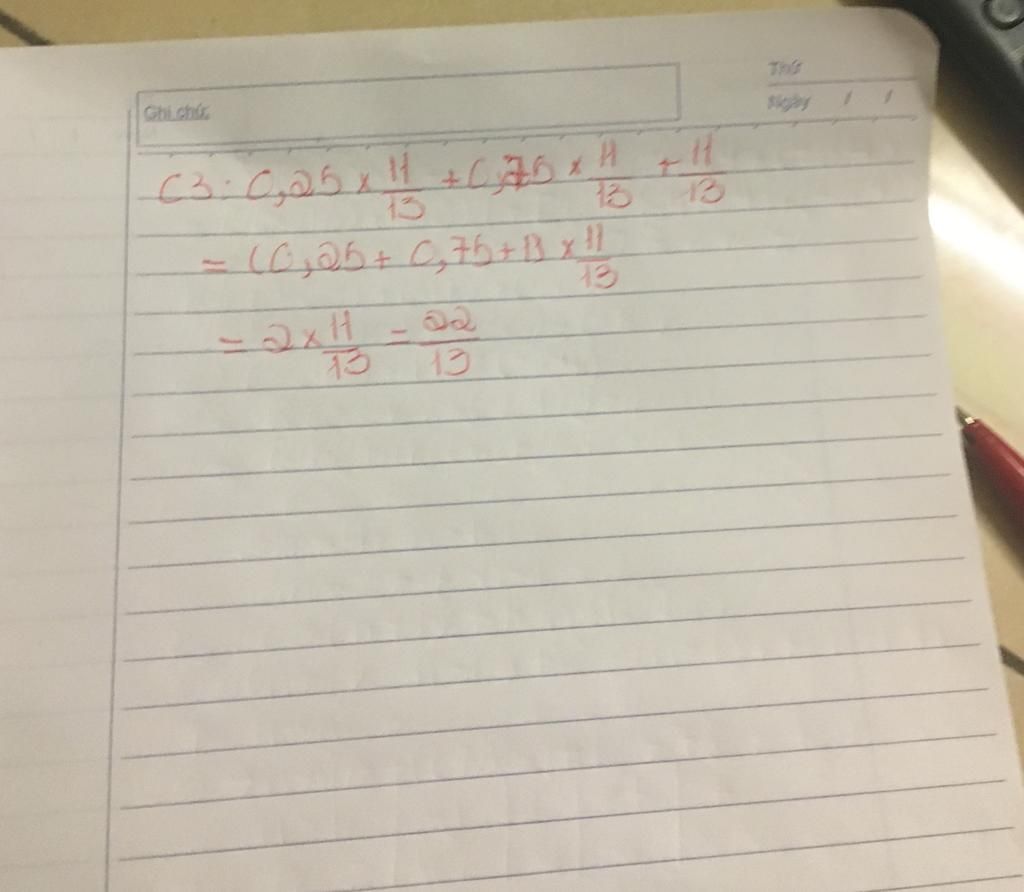 Ghi chú:
Thứ
Ngày / /
C3: 0,25 × 11/13 + 0,75 × 11/13 + 11/13
= (0,25 + 0,75 + 1) × 11/13
= 2 × 11/13 = 22/13